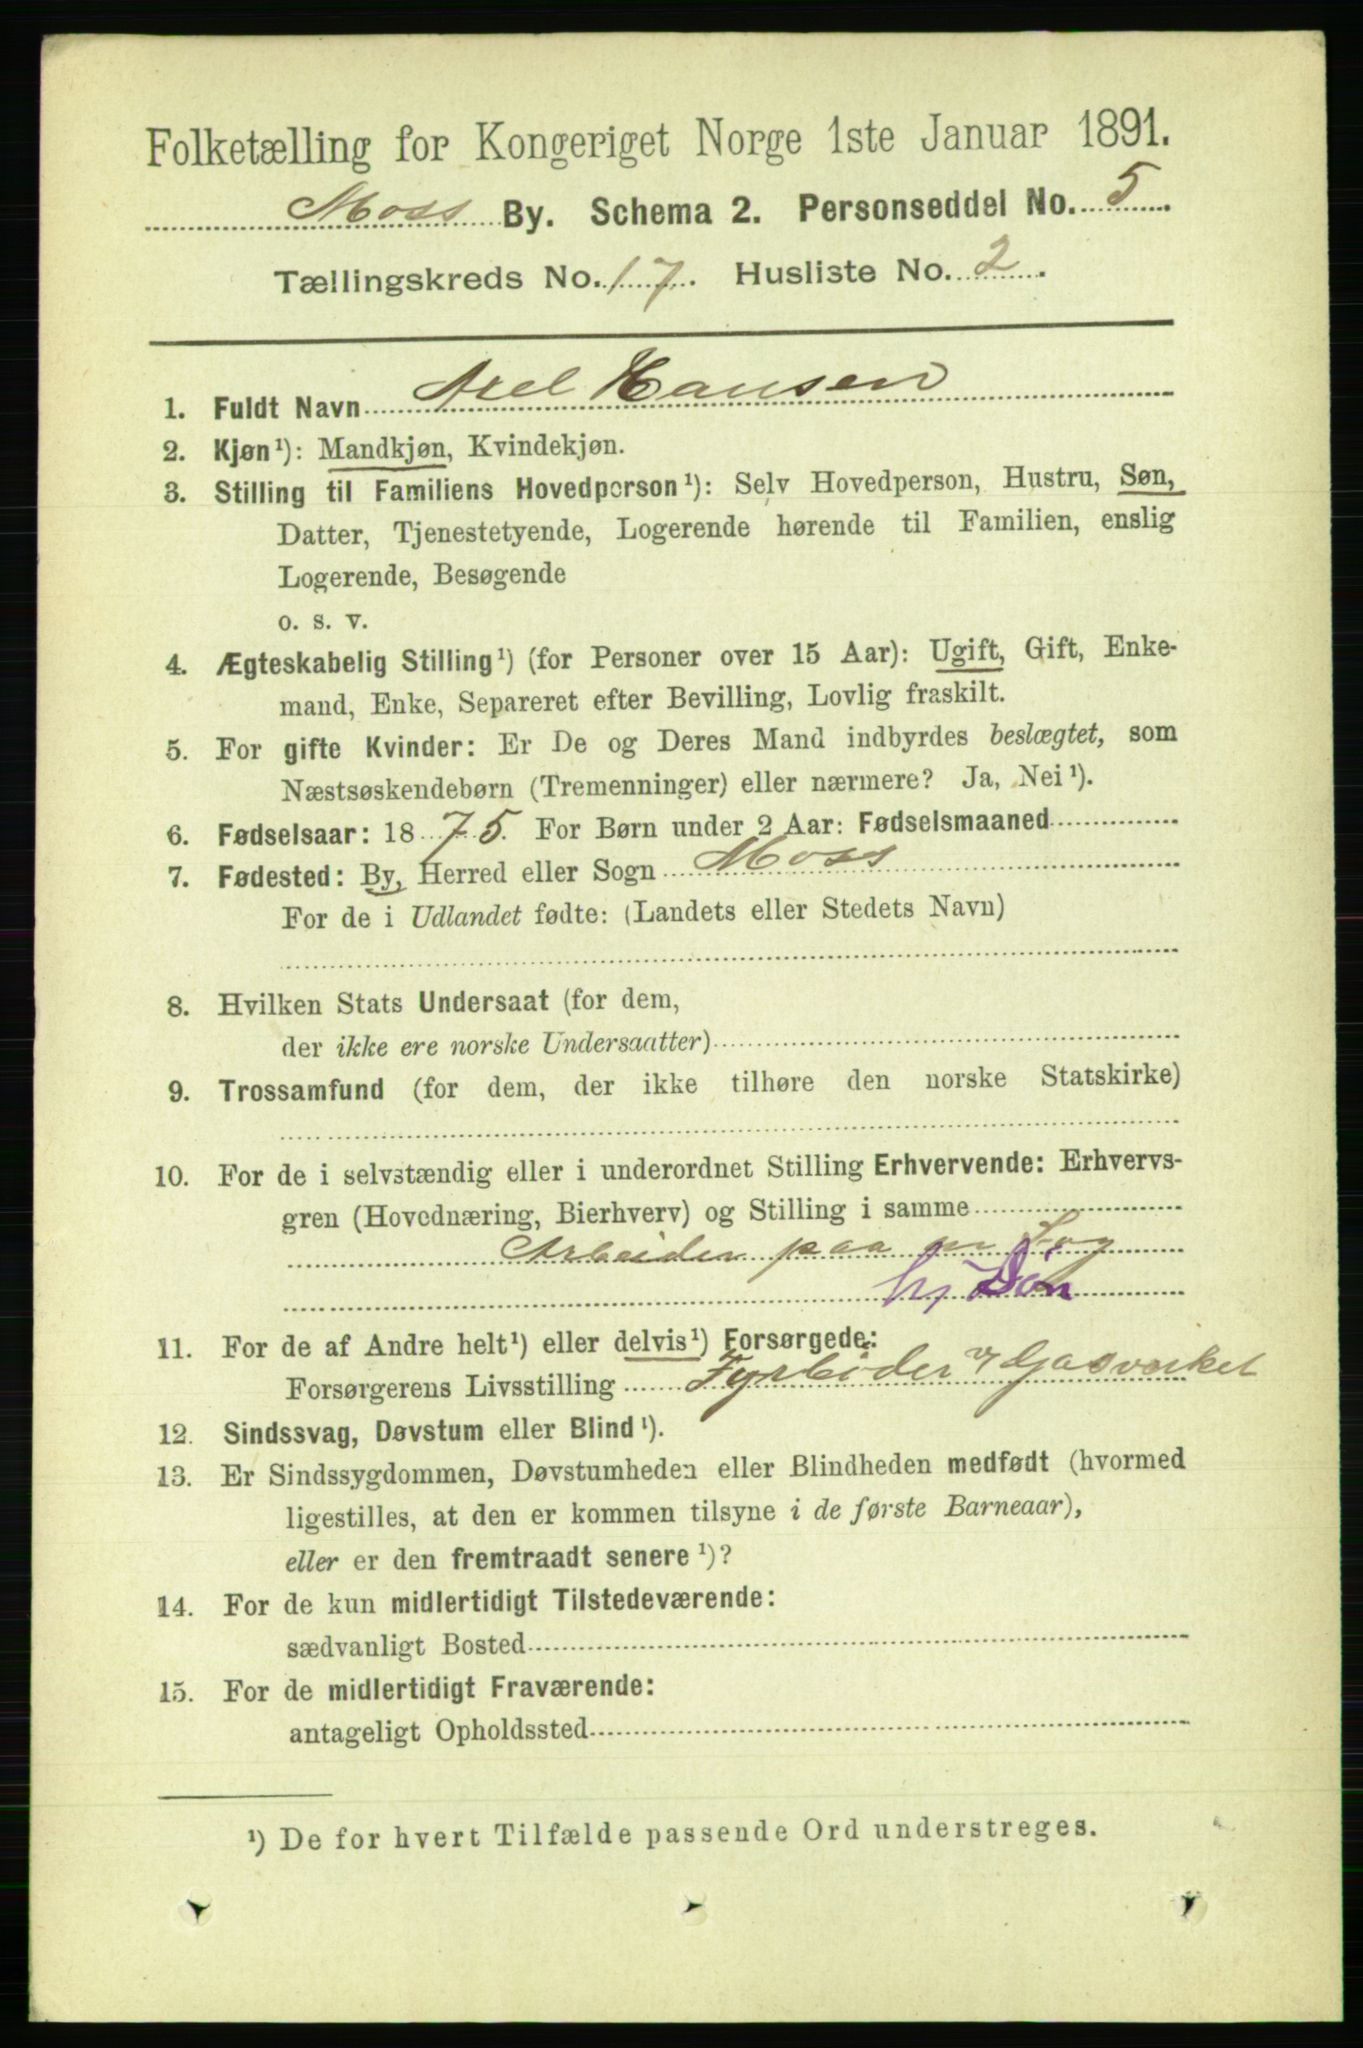 Folketælling for Kongeriget Norge 1ste Januar 1891.
Moss By. Schema 2. Personseddel No. 5.
Tællingskreds No. 17. Husliste No. 2.
1. Fuldt Navn Axel Hansen
2. Kjøn¹): Mandkjøn, Kvindekjøn.
3. Stilling til Familiens Hovedperson¹): Selv Hovedperson, Hustru, Søn,
Datter, Tjenestetyende, Logerende hørende til Familien, enslig
Logerende, Besøgende
o. s. v.
4. Ægteskabelig Stilling¹) (for Personer over 15 Aar): Ugift, Gift, Enke-
mand, Enke, Separeret efter Bevilling, Lovlig fraskilt.
5. For gifte Kvinder: Er De og Deres Mand indbyrdes beslægtet, som
Næstsøskendebørn (Tremenninger) eller nærmere? Ja, Nei¹).
6. Fødselsaar: 1875. For Børn under 2 Aar: Fødselsmaaned
7. Fødested: By, Herred eller Sogn Moss
For de i Udlandet fødte: (Landets eller Stedets Navn)
8. Hvilken Stats Undersaat (for dem,
der ikke ere norske Undersaatter)
9. Trossamfund (for dem, der ikke tilhøre den norske Statskirke)
10. For de i selvstændig eller i underordnet Stilling Erhvervende: Erhvervs-
gren (Hovednæring, Bierhverv) og Stilling i samme
Arbeider paa en Sag
hj Søn
11. For de af Andre helt¹) eller delvis¹) Forsørgede:
Forsørgerens Livsstilling Fyrbøder v Gasverket
12. Sindssvag, Døvstum eller Blind¹).
13. Er Sindssygdommen, Døvstumheden eller Blindheden medfødt (hvormed
ligestilles, at den er kommen tilsyne i de første Barneaar),
eller er den fremtraadt senere¹)?
14. For de kun midlertidigt Tilstedeværende:
sædvanligt Bosted
15. For de midlertidigt Fraværende:
antageligt Opholdssted
¹) De for hvert Tilfælde passende Ord understreges.